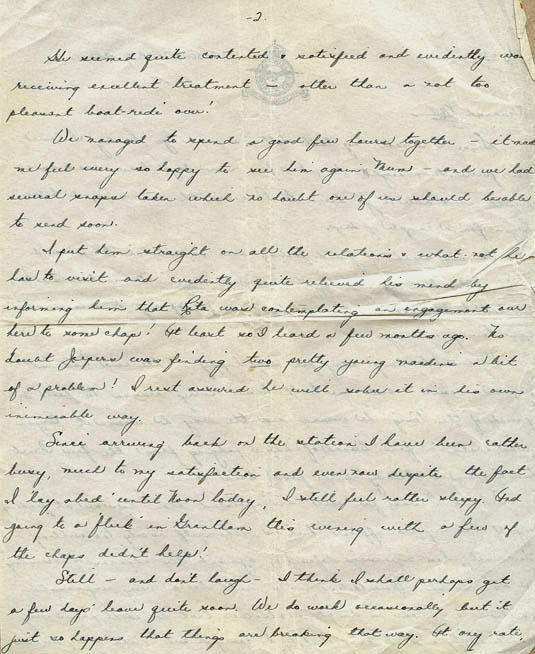 -2.
He seemed quite contented & satisfied and evidently was
receiving excellent treatment — other than a not too
pleasant boat-ride over!
We managed to spend a good few hours together, - it made
me feel every so happy to see him again Mum - and we had
several snaps taken which no doubt one of us should be able
to send soon.
I put him straight on all the relations & what-not he
has to visit and evidently quite relieved his mind by
informing him that was contemplating an engagement over
here to some chap! At least so I heard a few months ago. No
doubt was finding two pretty young maidens a bit
of a problem! I rest assured he will solve it in his own
inimicable way.
Since arriving back on the station I have been rather
busy, much to my satisfaction and even now despite the fact
I lay abed 'until Noon today, I still feel rather sleepy. And
going to a 'flick' in Grantham this evening with a few of
the chaps didn't help!
Still - and don't laugh - I think I shall perhaps get
a few days' leave quite soon. We do work occasionally but it
just so happens that things are breaking that way. At any rate,